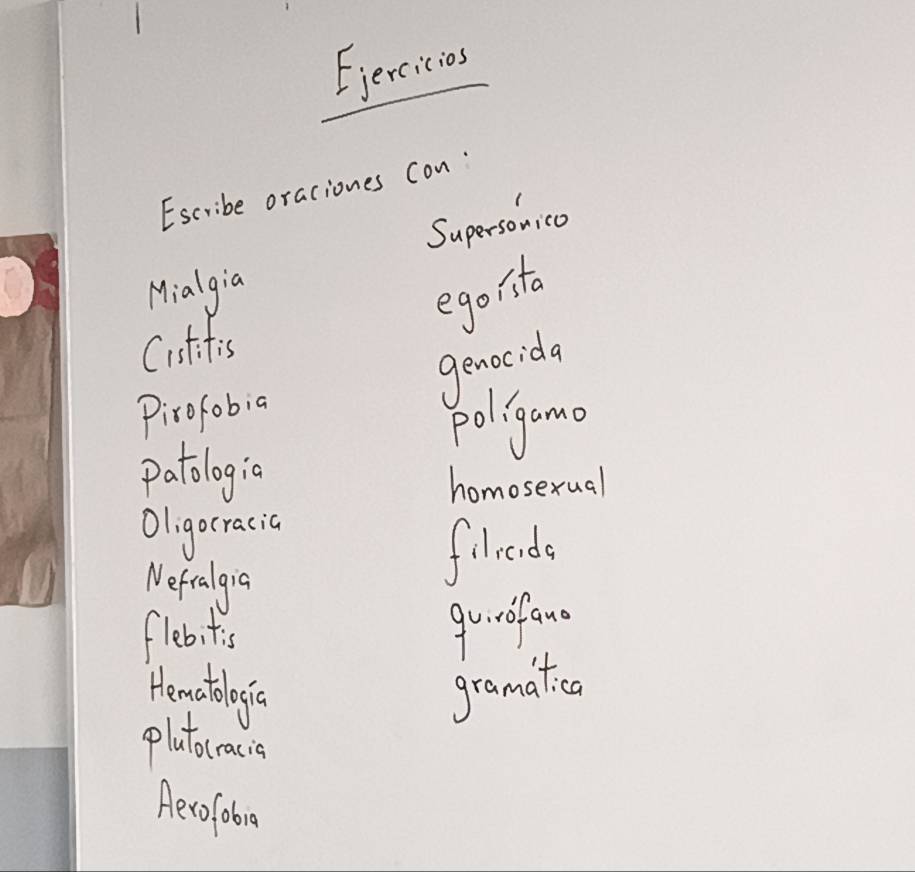 Ejercicios
Escribe oraciones con:
Mialgia
Cistitis
Pirofobia
Patología
Oligocracia
Nefralgia
flebitis
Hematología
plutocracia
Aerofobia
Supersónico
egoísta
genocida
polígamo
homosexual
filicida
quirófano
gramática